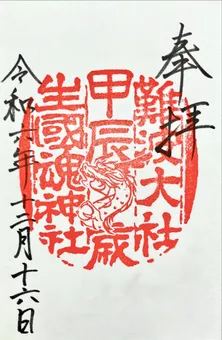 奉拝
難波大社
甲辰歳
生國魂神社
令和六年十二月十六日